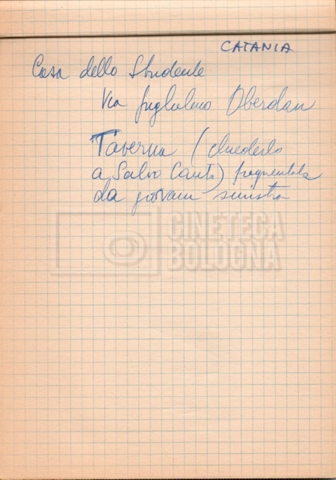 CATANIA
Casa dello Studente
Via Guglielmo Oberdan
Taverna (chiederlo
a Salvo Cantí) frequentata
da giovani sinistra
CINETECA
BOLOGNA